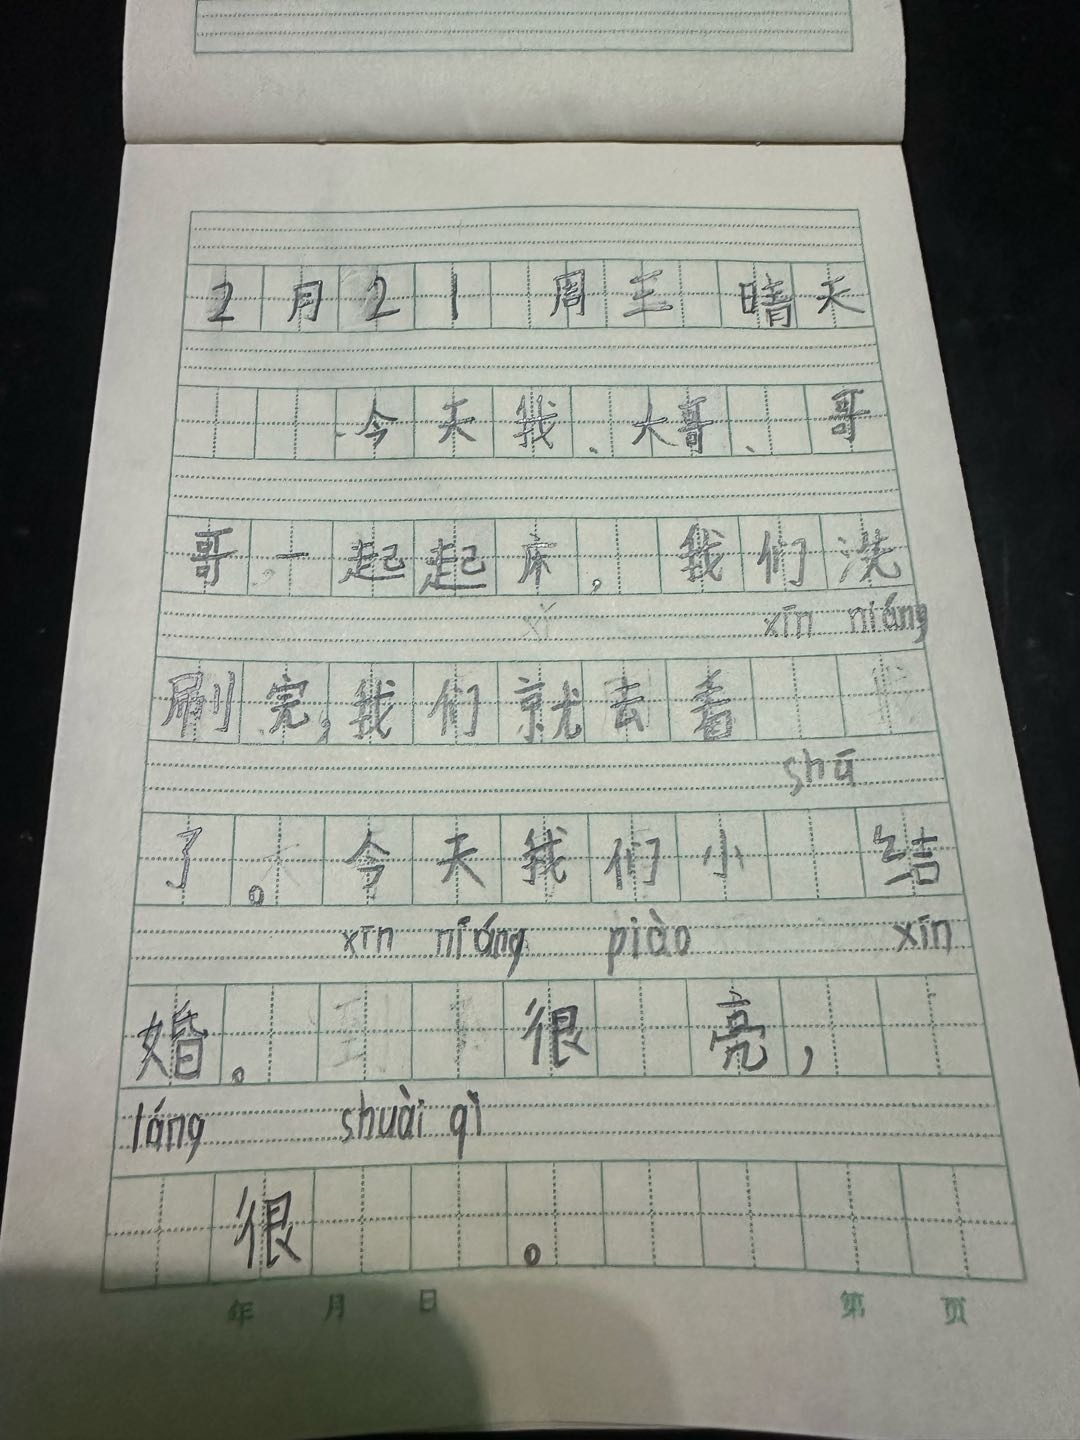 2月21 周三 晴天
今天我、大哥、哥
哥一起起床，我们洗
xīn niáng
刷完，我们就去看
shū
了。今天我们小 结
xīn niáng piào xīn
婚。 很 亮，
láng shuài qì
很 。
年 月 日 第 页